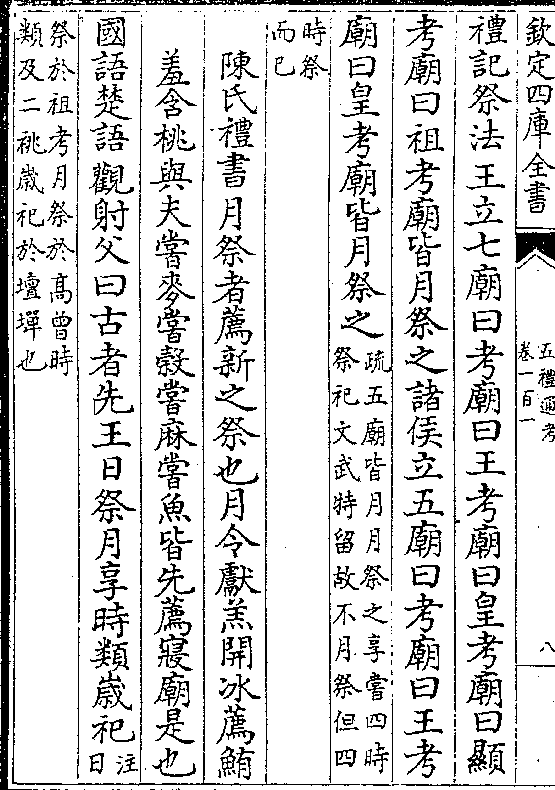 欽定四庫全書
五禮通考
卷一百一
八
禮記祭法王立七廟曰考廟曰王考廟曰皇考廟曰顯
考廟曰祖考廟皆月祭之諸侯立五廟曰考廟曰王考
廟曰皇考廟皆月祭之
疏五廟皆月月祭之享嘗四時
祭祀文武特留故不月祭但四
時祭
而已
陳氏禮書月祭者薦新之祭也月令獻羔開冰薦鮪
羞含桃與夫嘗麥嘗穀嘗麻嘗魚皆先薦寢廟是也
國語楚語觀射父曰古者先王日祭月享時類歲祀
注
日
祭於祖考月祭於高曾時
類及二祧歲祀於壇墠也